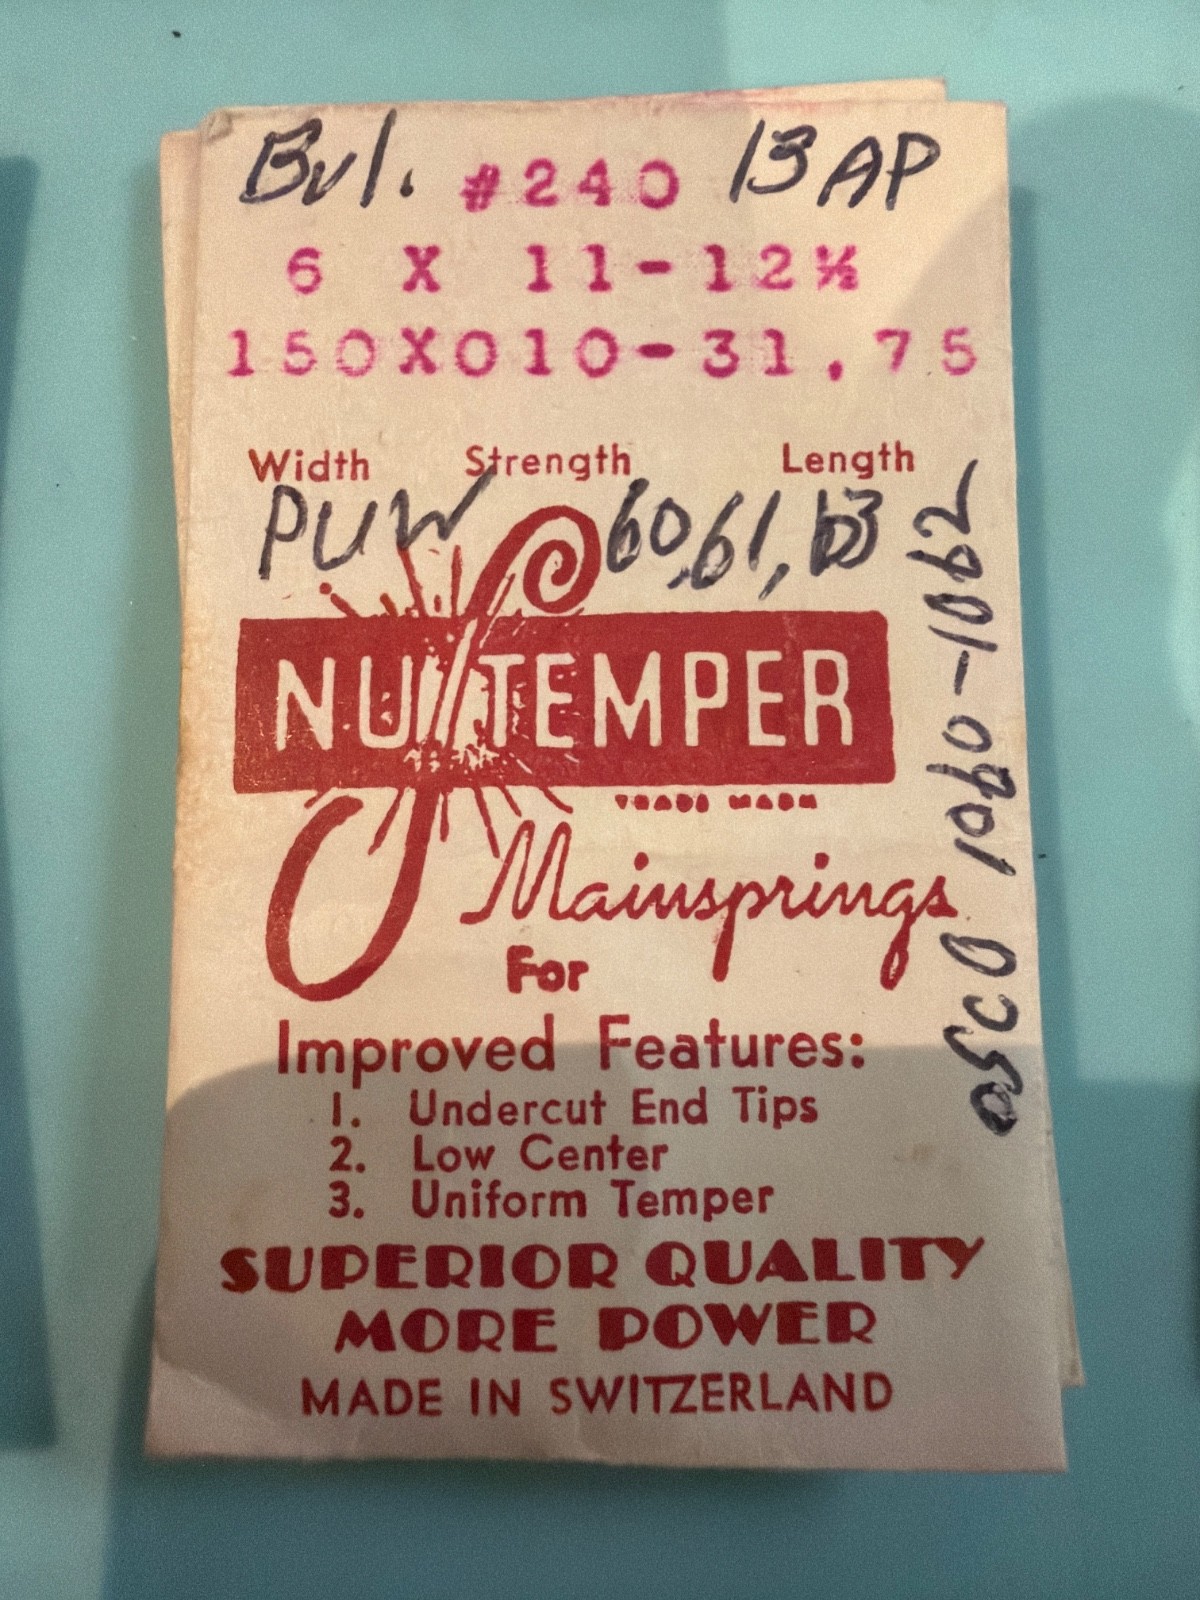 Bul. #240 13AP
6 X 11-12½
150X010-31.75
Width Strength Length
PUW 60,61,63
NU TEMPER
TRADE MARK
Mainsprings
For
Improved Features:
1. Undercut End Tips
2. Low Center
3. Uniform Temper
SUPERIOR QUALITY
MORE POWER
MADE IN SWITZERLAND
OSCO 1060-1062